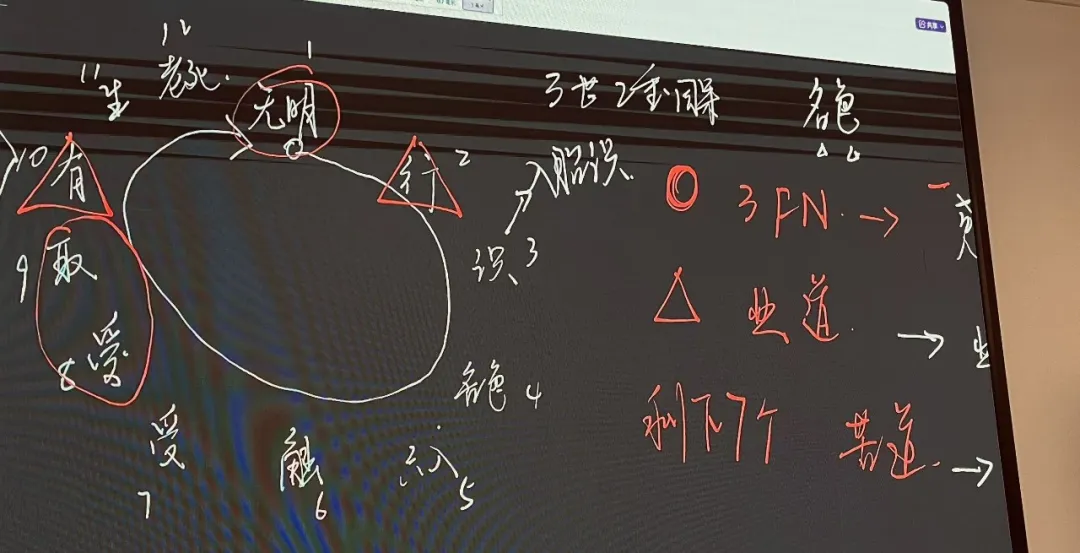 共享
12 老死.
11 生
1 无明
10 有
行 2
识 3
入胎识.
9 取
8 爱
名色 4
受 7
触 6
六入 5
3世2重因果
名色
3 FN. →
业道. →
剩下7个 苦道. →